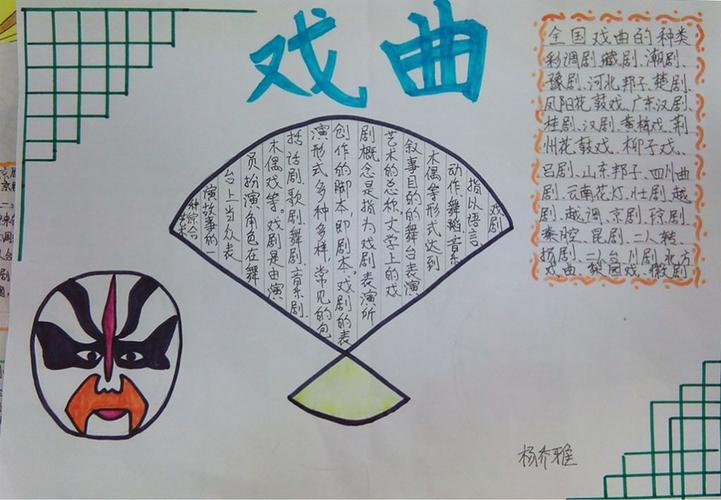 戏曲
全国戏曲的种类
彩调剧、藏剧、潮剧、
豫剧、河北邦子、楚剧、
凤阳花鼓戏、广东汉剧、
桂剧、汉剧、黄梅戏、荆
州花鼓戏、柳子戏、
吕剧、山东邦子、四州曲
剧、云南花灯、壮剧、越
剧、越调、京剧、琼剧
秦腔、昆剧、二人转、
扬剧、二人台、川剧、北方
戏曲、梨园戏、徽剧
戏剧
指以语言、
动作、舞蹈、音乐
木偶等形式达到
叙事目的的舞台表演
艺术的总称,文学上的戏
剧概念是指为戏剧表演所
创作的脚本,即剧本。戏剧的表
演形式多种多样,常见的包
括话剧、歌剧、舞剧、音乐剧、
木偶戏等。戏剧是由演
员扮演角色在舞
台上当众表
演故事的一
种综合
杨乔雅